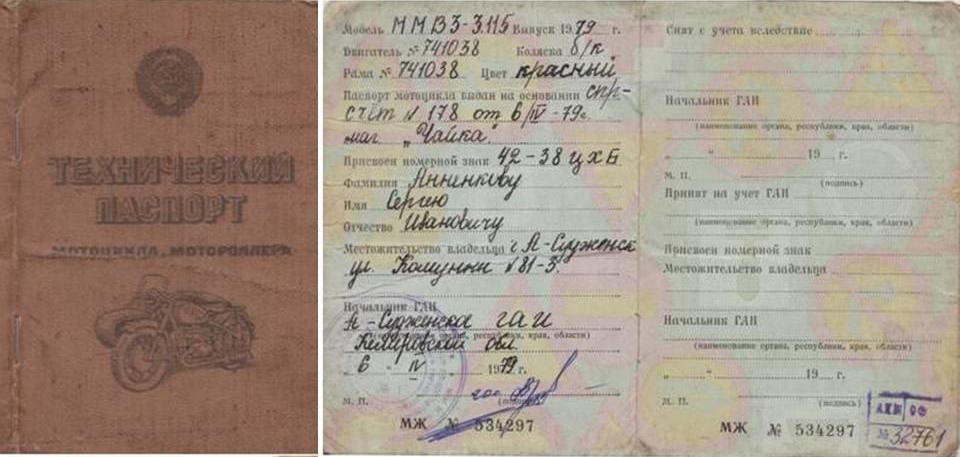 ТЕХНИЧЕСКИЙ
ПАСПОРТ
МОТОЦИКЛА, МОТОРОЛЛЕРА
Модель ММВЗ-3.115 Выпуск 1979 г.
Двигатель № 741038 Коляска б/к
Рама № 741038 Цвет красный
Паспорт мотоцикла выдан на основании спр-
счёт № 178 от 6/IV-79г.
маг. „Чайка"
Присвоен номерной знак 42-38 ЦХБ
Фамилия Анненкову
Имя Сергею
Отчество Ивановичу
Местожительство владельца г. А-Судженск
ул. Комунны № 81-3.
Начальник ГАИ
А-Судженска ГАИ
(наименование органа, республики, края, области)
Кемеровской обл.
6 IV 1979 г.
М. П. (подпись)
МЖ № 534297
Снят с учета вследствие
Начальник ГАИ
(наименование органа, республики, края, области)
„ " 19 г.
М. П. (подпись)
Принят на учет ГАИ
(наименование органа, республики, края, области)
Присвоен номерной знак
Местожительство владельца
Начальник ГАИ
(наименование органа, республики, края, области)
„ " 19 г.
М. П. (подпись)
МЖ № 534297
№ 32761